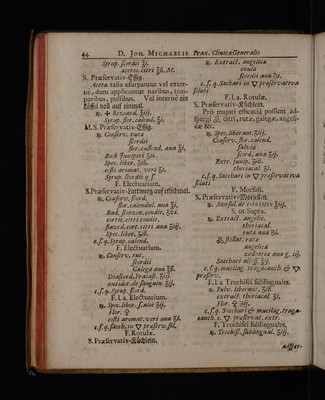 44 D. JOH. MICHAELIS Prax. Clinicæ Generalis
Syrup. scordii ℥j.
acetos. citri ℥ß. M.
S. Præservativ-Essig.
Aceta talia usurpantur vel exter-
ne, dum applicantur naribus, tem-
poribus, pulsibus. Vel interne ein
Löffel voll auf einmal.
Syrup. flor. calend. ℥j.
M. S. Præservativ-Essig.
℞. Conserv. ruta
scordii
flor. calend. ana ℥j.
Rob Juniperi ℥ij.
Spec. liber. ℥ß.
costi aromat. veri ℥j.
Syrup. scordii q. s.
F. Electuarium.
S. Præservativ-Lattwerg auf etlichmal.
℞. Conserv. scord.
flor. calendul. ana ℥j.
Rad. scorzon. condit. ℥vi.
cortic. citri condit.
flaved. cort. citri ana ℥iij.
Spec. liber. ℥iß.
c. s. q. Syrup. calend.
F. Electuarium.
℞. Conserv. rut.
scordii
Galega ana ℥ß.
Diascord. Fracast. ℥iij.
c. s. q. Syrup. scord.
F. l. a. Electuarium.
℞. Spec. liber. s. aloe ℥ij.
costi aromat. veri ana ℥j.
F. Rotulæ.
S. Præservativ-Küchlein.
℞. Extract. angelica
enula
scordii ana ℥j.
c. s. q. Sacchari in ▽ præservativa
soluti
F. l. a. Rotulæ,
S. Præservativ-Küchlein.
Pro majori efficacia possunt ad-
citri, rutæ, galegæ, angeli-
cæ &c.
℞. Spec. liberant. ℥iij.
Conserv. flor. calend.
salvia
scord. ana ℥ij.
Extr. junip. ℥iß.
theriacal ℥j.
c. s. q. Sacchari in ▽ præservativa
soluti
F. Morsuli.
S. Præservativ-Morsellen.
S. ut Supra.
℞. Extract. angelic.
theriacal
ruta ana ℥j.
ruta
angelica
zedoaria ana g. iij
c. s. q. mucilag. tragacanth. & ▽
præserv.
F. l. a Trochisci sublinguales.
℞. Pulv. liberant. ℥iß.
extract. theriacal ℥j.
c. s. q. Sacchari & mucilag. traga-
canth. c. ▽. præservat. extr.
F. Trochisci sublinguales.
℞. Trochisc. sublingual. ℥iij.